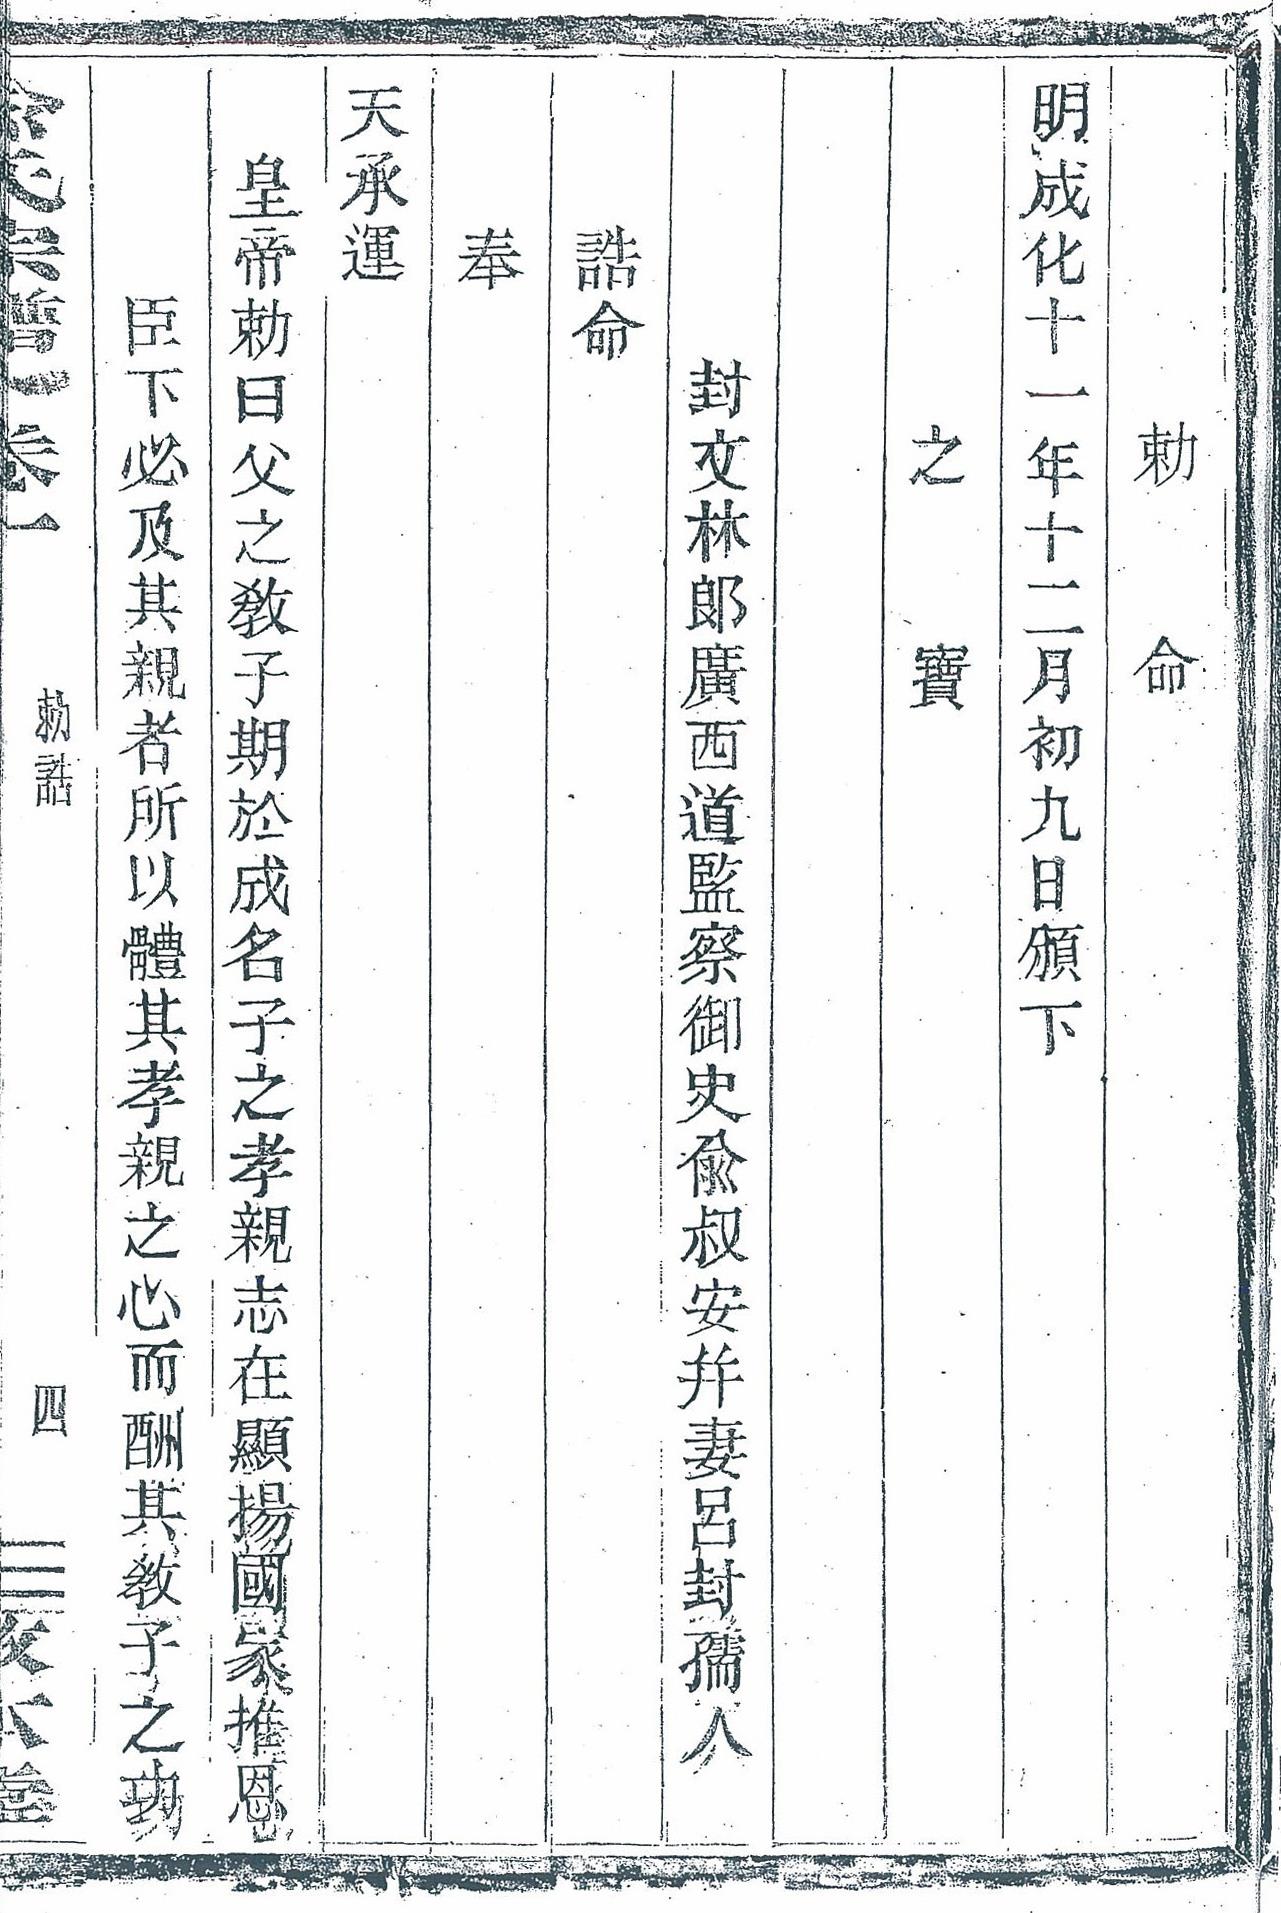 勅命
明成化十一年十二月初九日頒下
之寶
封文林郎廣西道監察御史俞叔安幷妻呂封孺人
誥命
奉
天承運
皇帝勅曰父之敎子期於成名子之孝親志在顯揚國家推恩
臣下必及其親者所以體其孝親之心而酬其敎子之功
宗譜 卷一 勅誥 四